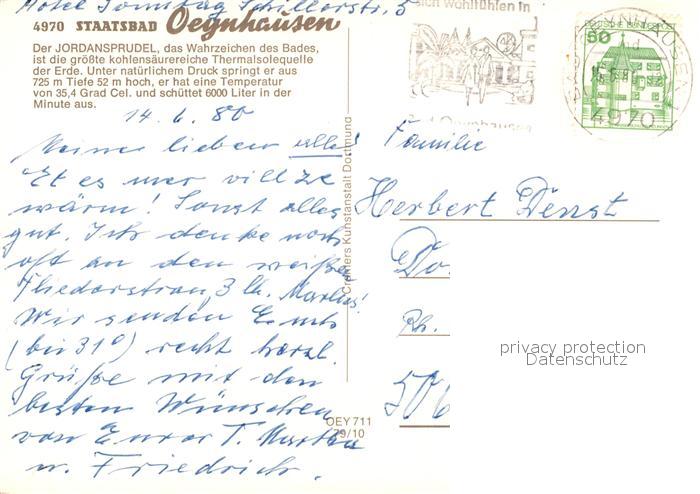 Hotel Sonntag Schillerstr. 5
4970 STAATSBAD Oeynhausen
Der JORDANSPRUDEL, das Wahrzeichen des Bades,
ist die größte kohlensäurereiche Thermalsolequelle
der Erde. Unter natürlichem Druck springt er aus
725 m Tiefe 52 m hoch, er hat eine Temperatur
von 35,4 Grad Cel. und schüttet 6000 Liter in der
Minute aus.
14. 6. 80
Meine lieben alle!
Et es mer vill ze
wärm! Sonst alles
gut. Ich denke noch
oft an den weißen
Fliederstrauß lb.
Wir senden
(bis 31°) recht herzl.
Grüße mit den
besten Wünschen
von Eurer T. Martha
u. Friedrich.
Cramers Kunstanstalt Dortmund
OEY 711
79/10
sich wohlfühlen in
Bad Oeynhausen
DEUTSCHE BUNDESPOST
50
4970
Familie
Herbert Denst
Do.
Rh.
506
privacy protection
Datenschutz